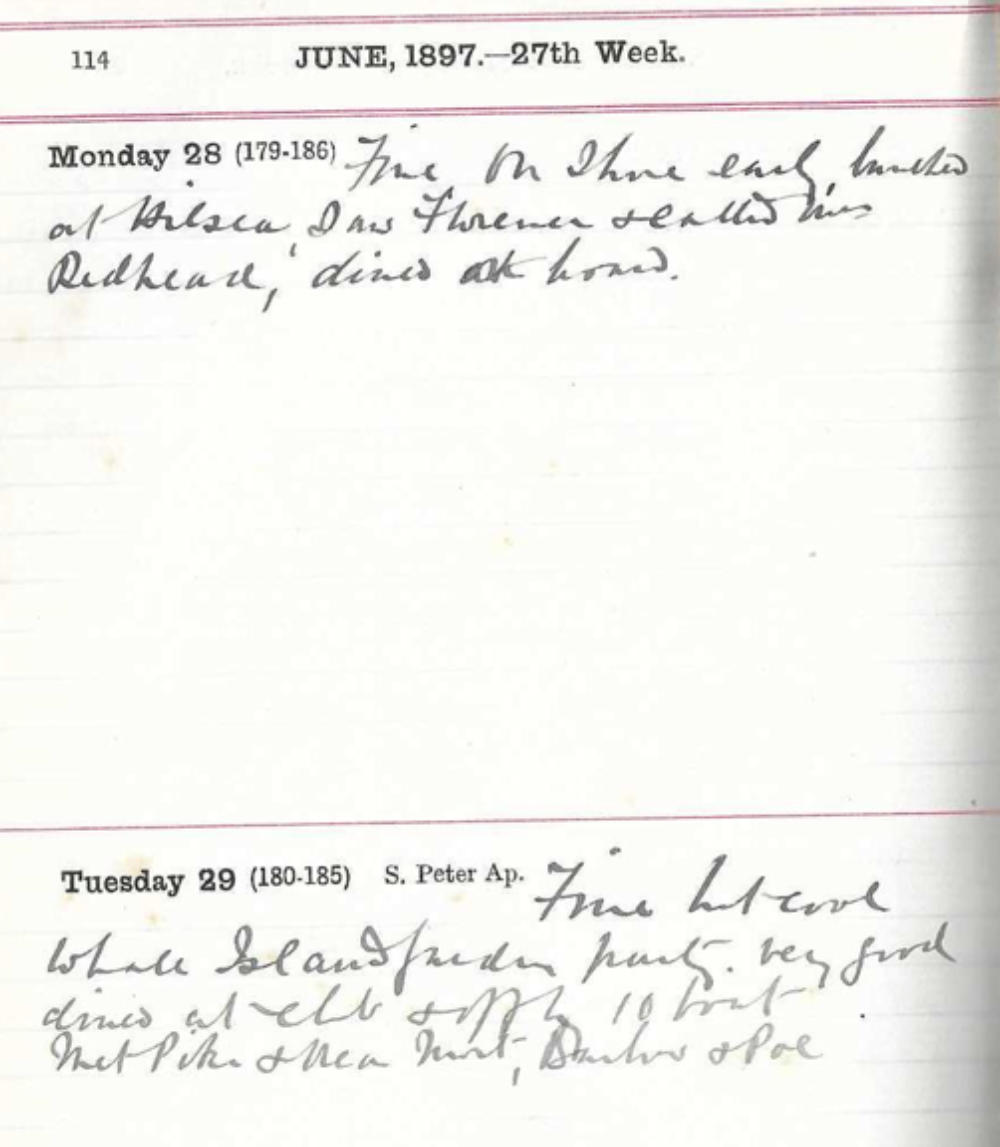 114 JUNE, 1897.—27th Week.
Monday 28 (179-186) Fine On Shore early, lunched
at Hilsea, Saw Florence & called Miss
Redhead, dined on board.
Tuesday 29 (180-185) S. Peter Ap. Fine but cool
Whale Island garden party. very good
dined at club & off by 10 boat
Met Pike &